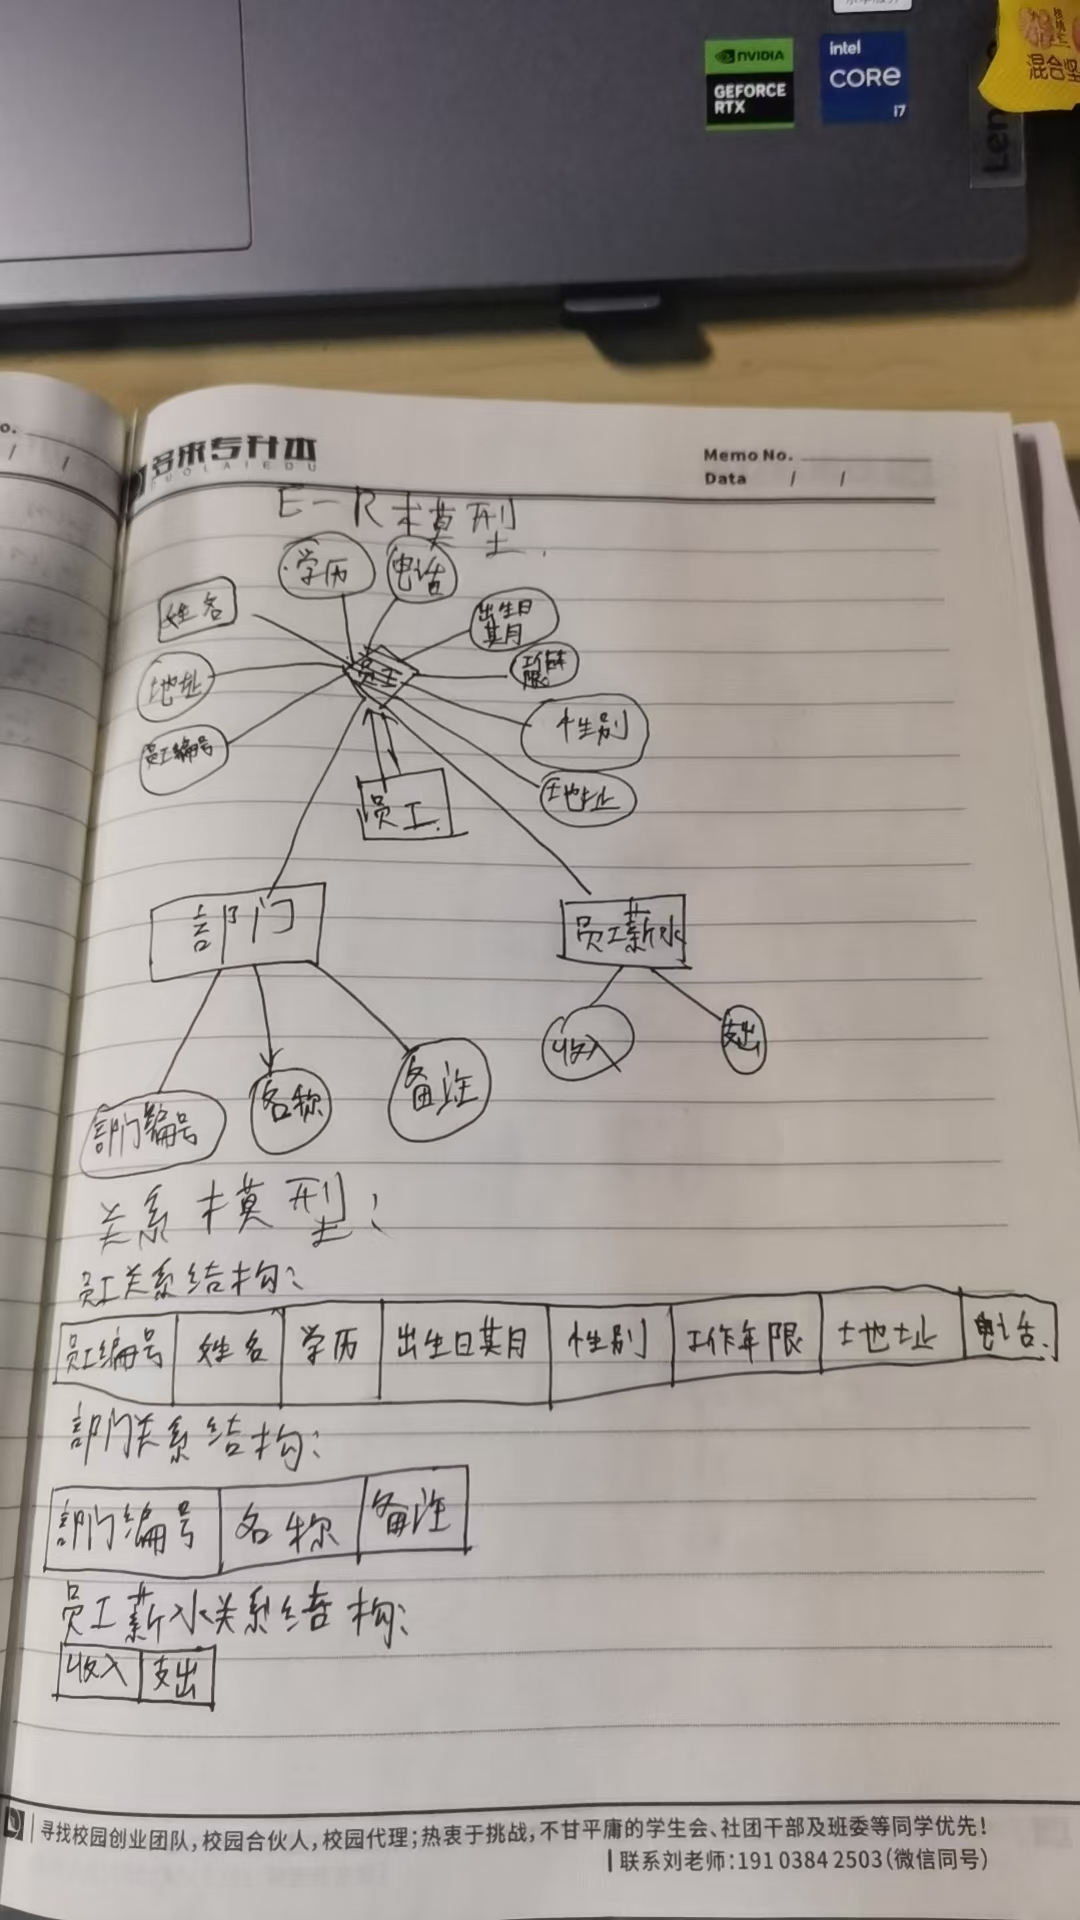 NVIDIA
GEFORCE
RTX
intel
CORE
i7
Len
混合坚
多来专升本
DUOLAIEDU
Memo No.
Data / /
E-R模型
学历
电话
姓名
出生日期
地址
员工
性别
员工编号
地址
员工
部门
员工薪水
收入
支出
部门编号
名称
备注
关系模型:
员工关系结构:
员工编号 姓名 学历 出生日期 性别 工作年限 地址 电话
部门关系结构:
部门编号 名称 备注
员工薪水关系结构:
收入 支出
寻找校园创业团队,校园合伙人,校园代理;热衷于挑战,不甘平庸的学生会、社团干部及班委等同学优先!
联系刘老师:191 0384 2503(微信同号)